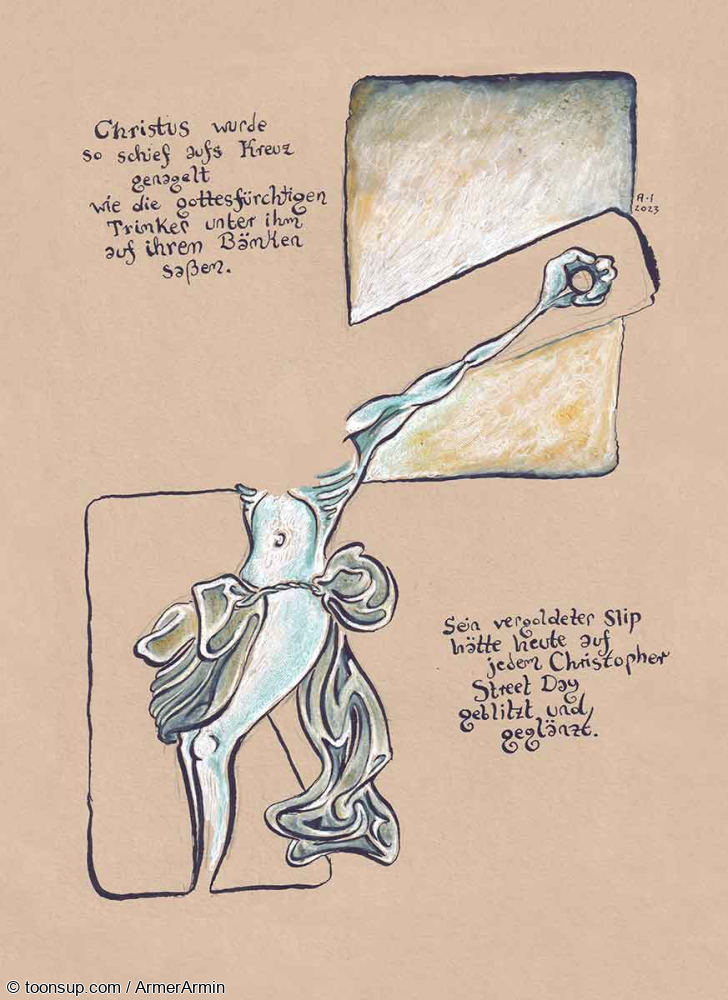 Christus wurde
so schief aufs Kreuz
genagelt
wie die gottesfürchtigen
Trinker unter ihm
auf ihren Bänken
saßen.
A.I
2023
Sein vergoldeter Slip
hätte heute auf
jedem Christopher
Street Day
geblitzt und
geglänzt.
© toonsup.com / ArmerArmin